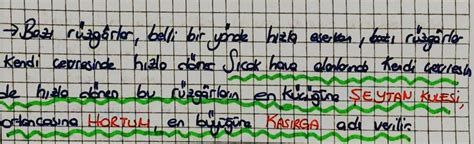 → Bazı rüzgârlar, belli bir yönde hızla eserken, bazı rüzgârlar
kendi çevresinde hızla döner. Sıcak hava alanlarında kendi çevresin
de hızla dönen bu rüzgârların en küçüğüne ŞEYTAN KULESİ,
ortancasına HORTUM, en büyüğüne KASIRGA adı verilir.